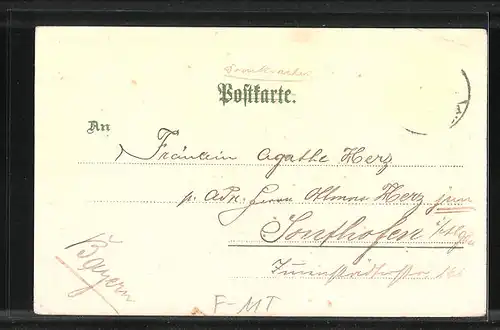 Drucksache
Postkarte.
An
Fräulein Agathe Herz
p. Adr. Herrn Othmar Herz jun
Sonthofen i/Allgäu
Bayern
F-MT